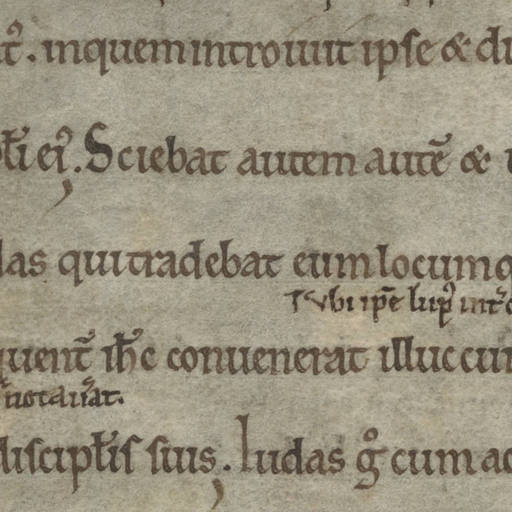 . inquem introiuit ipse &
eiꝰ. Sciebat autem autē &
das qui tradebat eum locum
ubi ipse lupꝰ
quent ihc conuenerat illuc cum
notauerat.
discipulis suis. Iudas gͦ cum